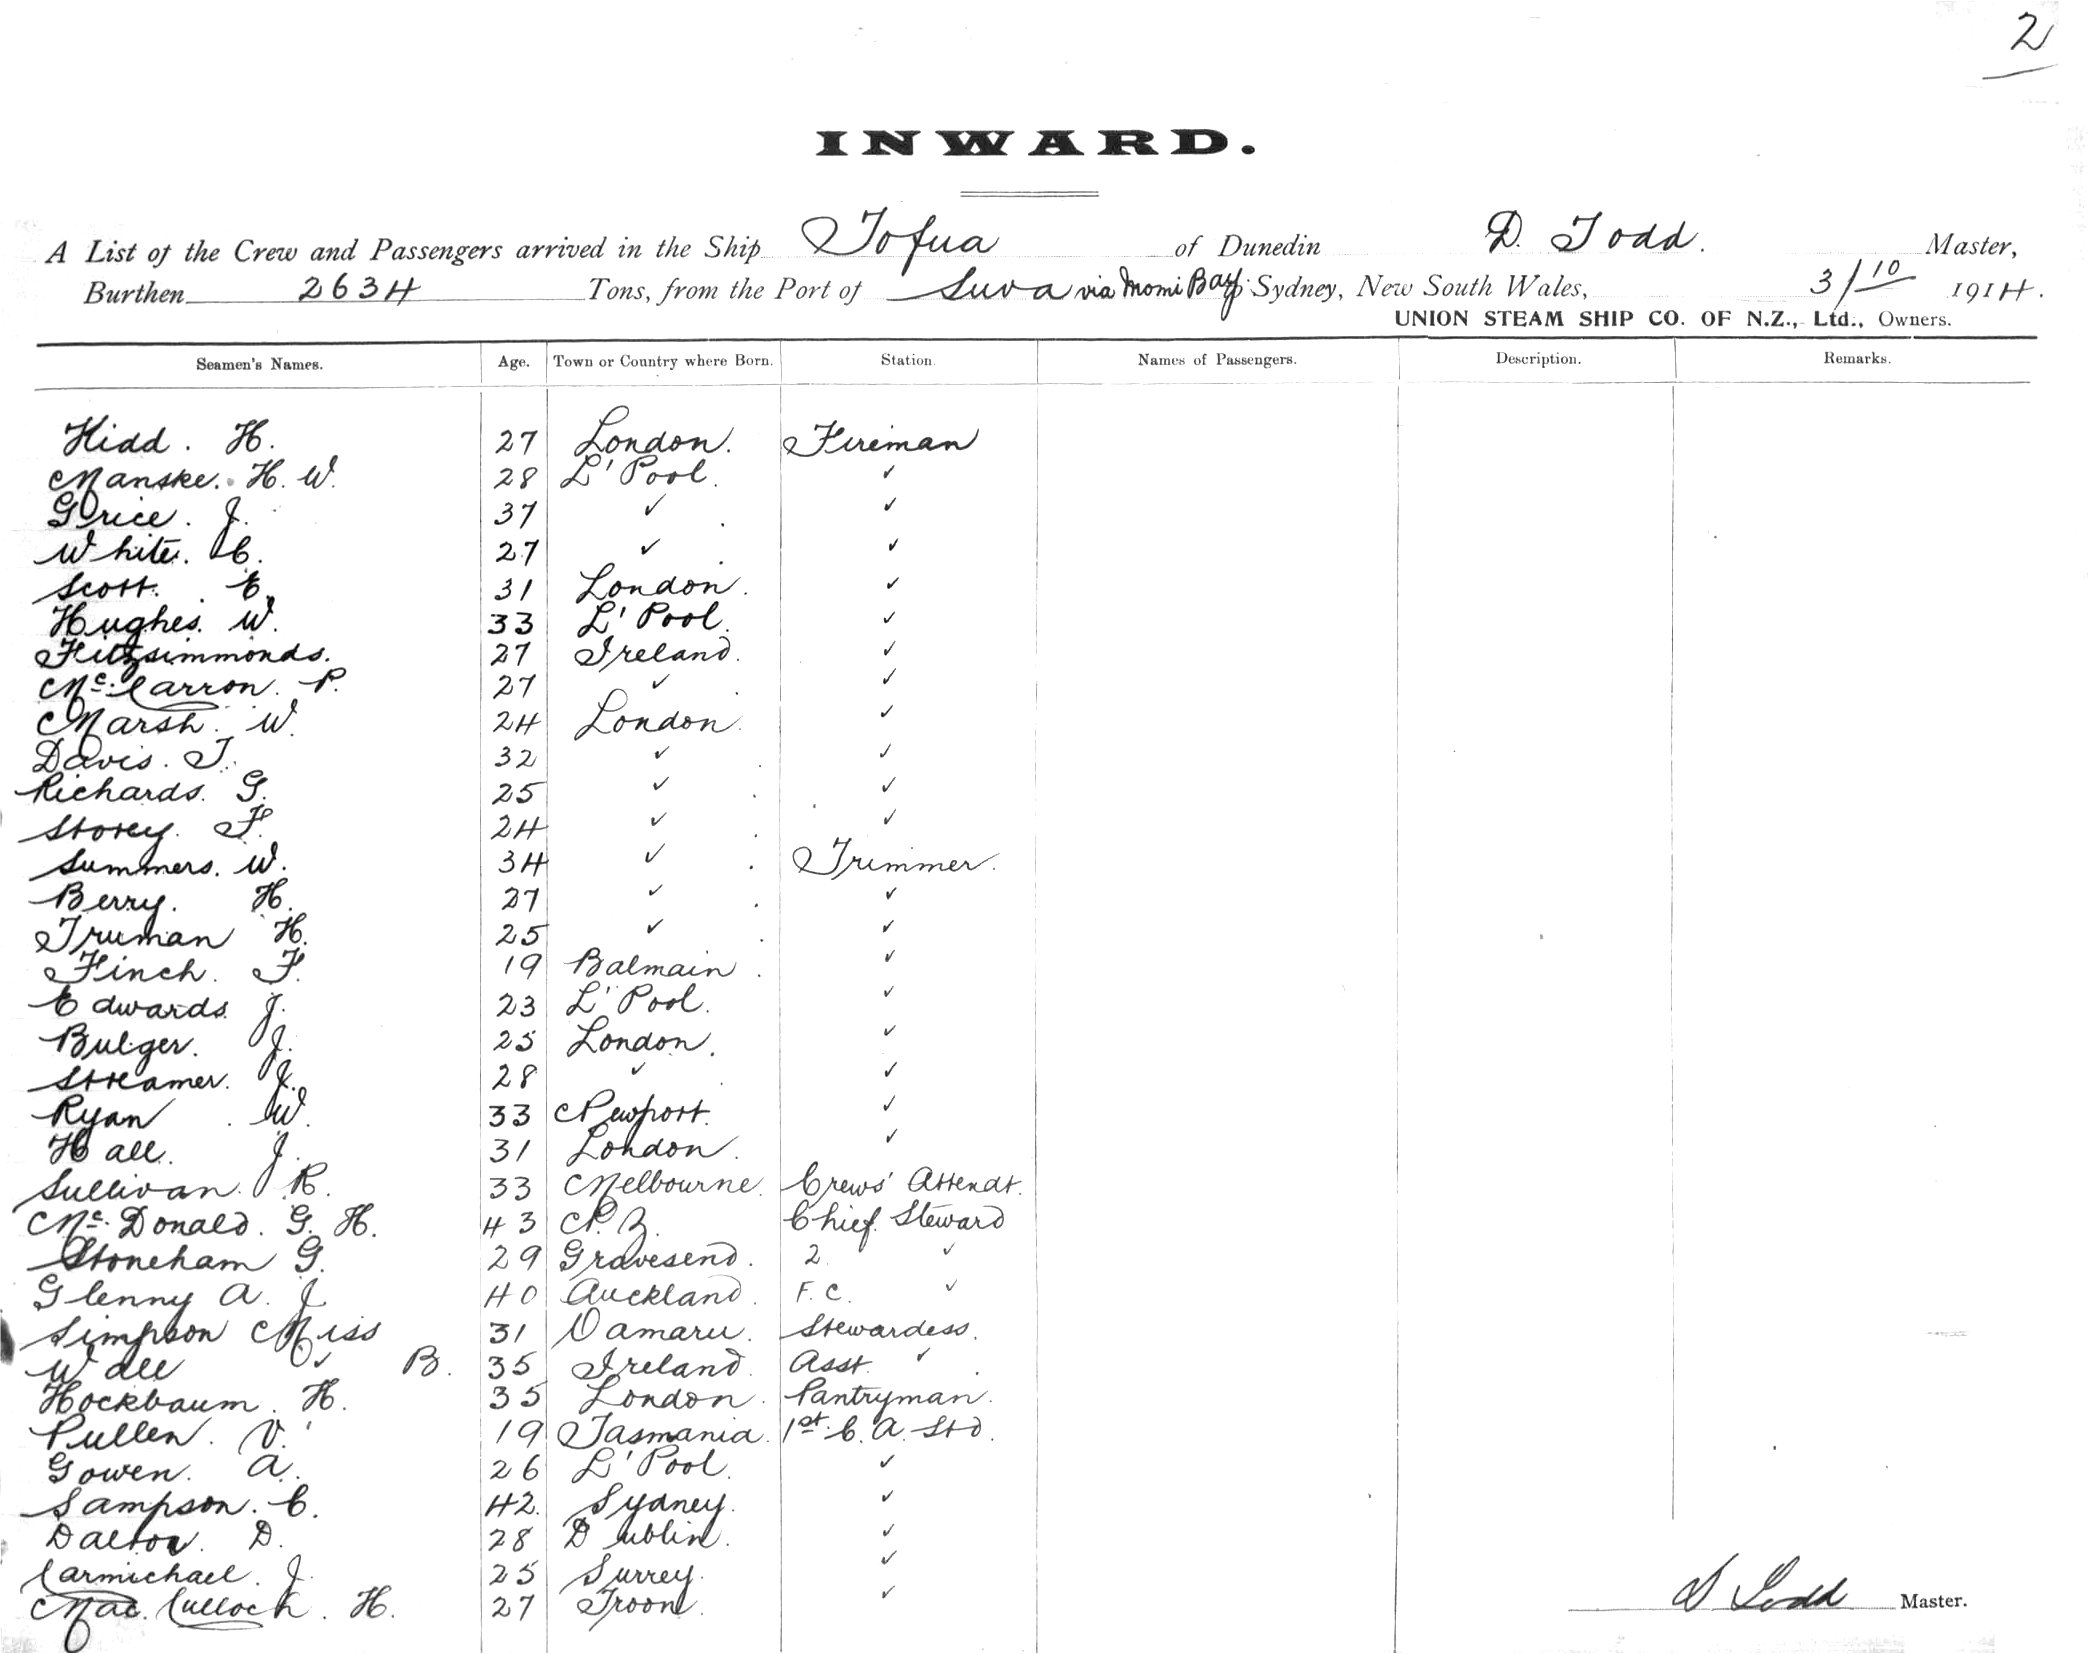 2
INWARD.
A List of the Crew and Passengers arrived in the Ship Tofua of Dunedin D. Todd. Master,
Burthen 2634 Tons, from the Port of Suva via Momi Bay Sydney, New South Wales, 3/10 1914.
UNION STEAM SHIP CO. OF N.Z., Ltd., Owners.
Seamen's Names. Age. Town or Country where Born. Station. Names of Passengers. Description. Remarks.
Kidd. H. 27 London. Fireman
Manske. H. W. 28 L'Pool. ✓
Grice. J. 37 ✓ ✓
White. C. 27 ✓ ✓
Scott. E. 31 London. ✓
Hughes. W. 33 L'Pool. ✓
Fitzsimmonds. 27 Ireland. ✓
Mc.Carron. P. 27 ✓ ✓
Marsh. W. 24 London. ✓
Davis. T. 32 ✓ ✓
Richards. G. 25 ✓ ✓
Storey. F. 24 ✓ ✓
Summers. W. 34 ✓ Trimmer.
Berry. H. 27 ✓ ✓
Truman H. 25 ✓ ✓
Finch. F. 19 Balmain. ✓
Edwards. J. 23 L'Pool. ✓
Bulger. J. 25 London. ✓
Streamer. J. 28 ✓ ✓
Ryan W. 33 Newport. ✓
Hall. J. 31 London. ✓
Sullivan. R. 33 Melbourne. Crews' Attendt.
Mc.Donald. G. H. 43 N.Z. Chief Steward
Stoneham G. 29 Gravesend. 2 ✓
Glenny A. J. 40 Auckland. F.C. ✓
Simpson Miss 31 Oamaru. Stewardess.
Wall ✓ B. 35 Ireland Asst. ✓
Hockbaum. H. 35 London. Pantryman.
Pullen. V. 19 Tasmania. 1st. C. A. Std.
Gowen. A. 26 L'Pool. ✓
Sampson. C. 42. Sydney. ✓
Dalton. D. 28 Dublin. ✓
Carmichael. J. 25 Surrey. ✓
Mac.Culloch. H. 27 Troon. ✓
D Todd Master.